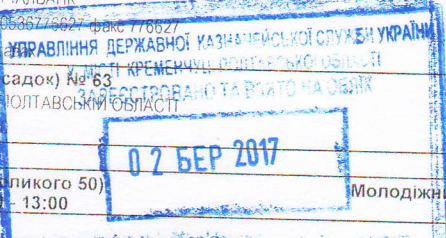 0536776627 факс 776627
УПРАВЛІННЯ ДЕРЖАВНОЇ КАЗНАЧЕЙСЬКОЇ СЛУЖБИ УКРАЇНИ
У МІСТІ КРЕМЕНЧУЦІ ПОЛТАВСЬКОЇ ОБЛАСТІ
садок) № 63
ЗАРЕЄСТРОВАНО ТА ВЗЯТО НА ОБЛІК
ПОЛТАВСЬКІЙ ОБЛАСТІ
02 БЕР 2017
еликого 50)
Молодіжн
- 13:00